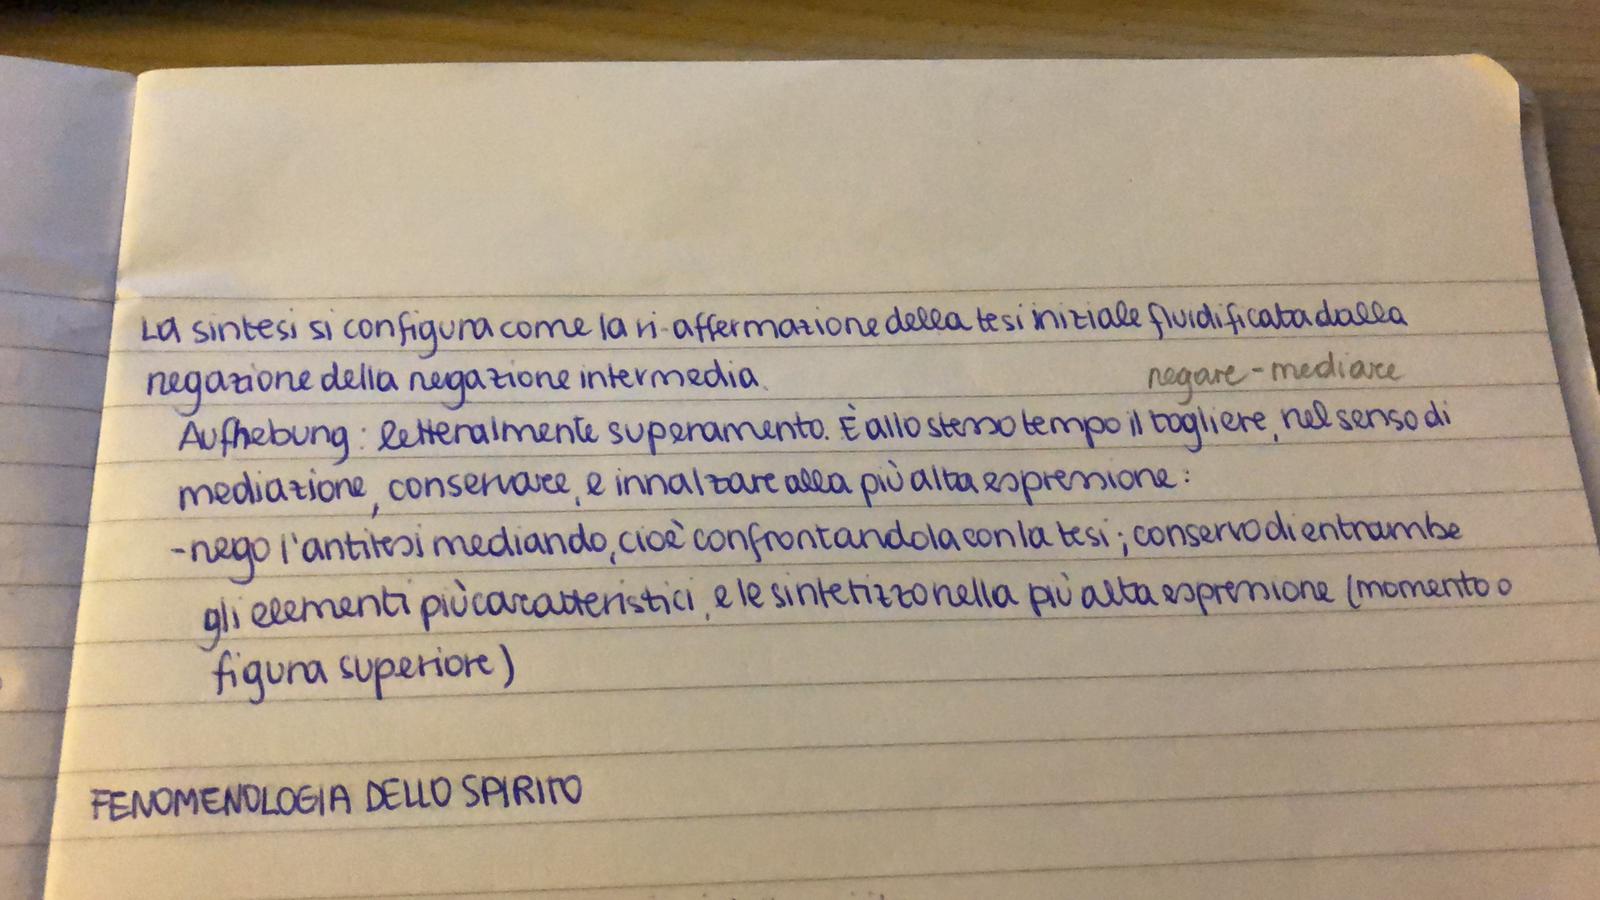 La sintesi si configura come la ri-affermazione della tesi iniziale fluidificata dalla
negazione della negazione intermedia.
negare - mediare
Aufhebung: letteralmente superamento. È allo stesso tempo il togliere, nel senso di
mediazione, conservare, e innalzare alla più alta espressione:
- nego l'antitesi mediando, cioè confrontandola con la tesi; conservo di entrambe
gli elementi più caratteristici, e le sintetizzo nella più alta espressione (momento o
figura superiore)
FENOMENOLOGIA DELLO SPIRITO